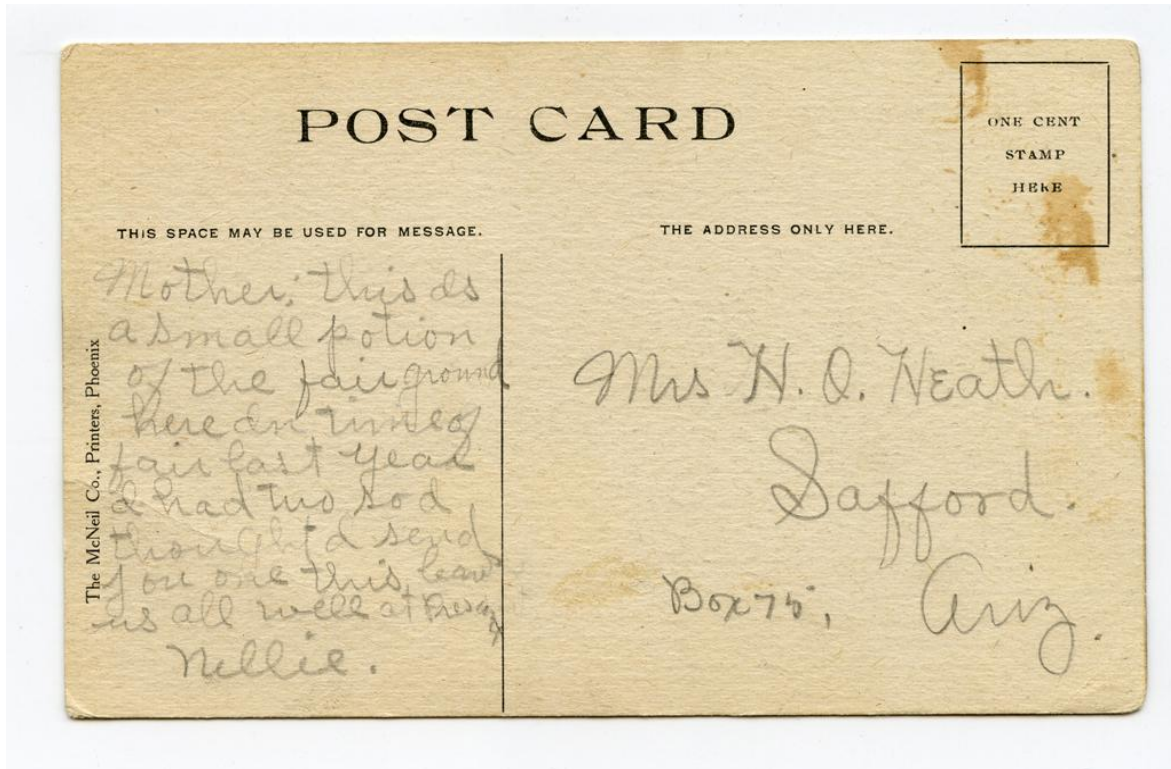 POST CARD
ONE CENT
STAMP
HERE
THIS SPACE MAY BE USED FOR MESSAGE.
THE ADDRESS ONLY HERE.
The McNeil Co., Printers, Phoenix
Mother; this is
a small potion
of the fair ground
here in time of
fair last year
I had two so I
thought I send
you one this leave
us all well at
Nellie.
Mrs H. O. Heath.
Safford.
Box 75,
Ariz.